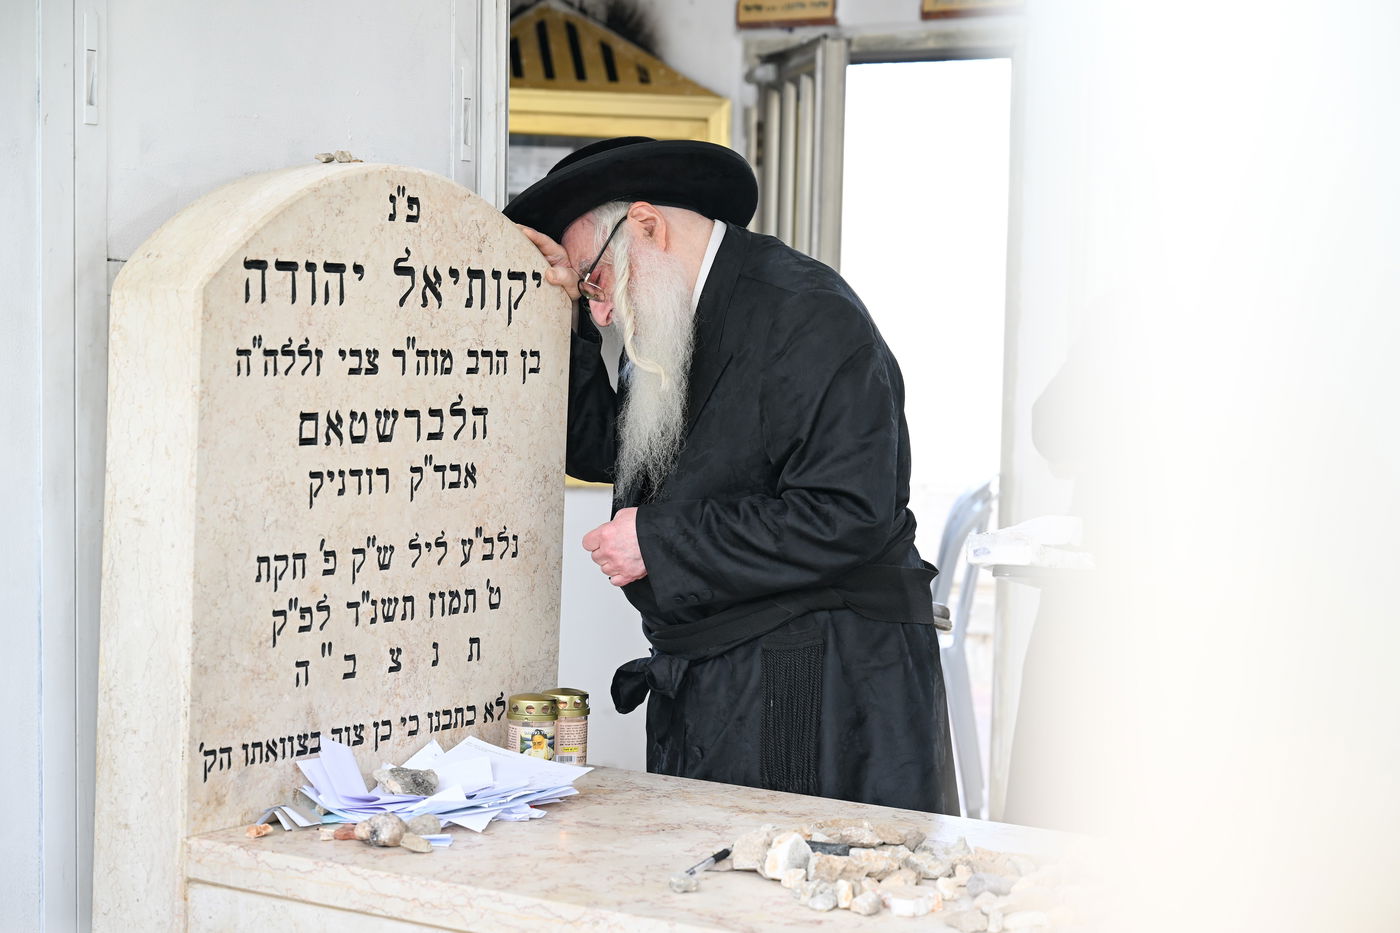 פ"נ
יקותיאל יהודה
בן הרב מוה"ר צבי זללה"ה
הלברשטאם
אבד"ק רודניק
נלב"ע ליל ש"ק פ' חקת
ט' תמוז תשנ"ד לפ"ק
ת נ צ ב " ה
לא כתבנו כי כן צוה בצוואתו הק'